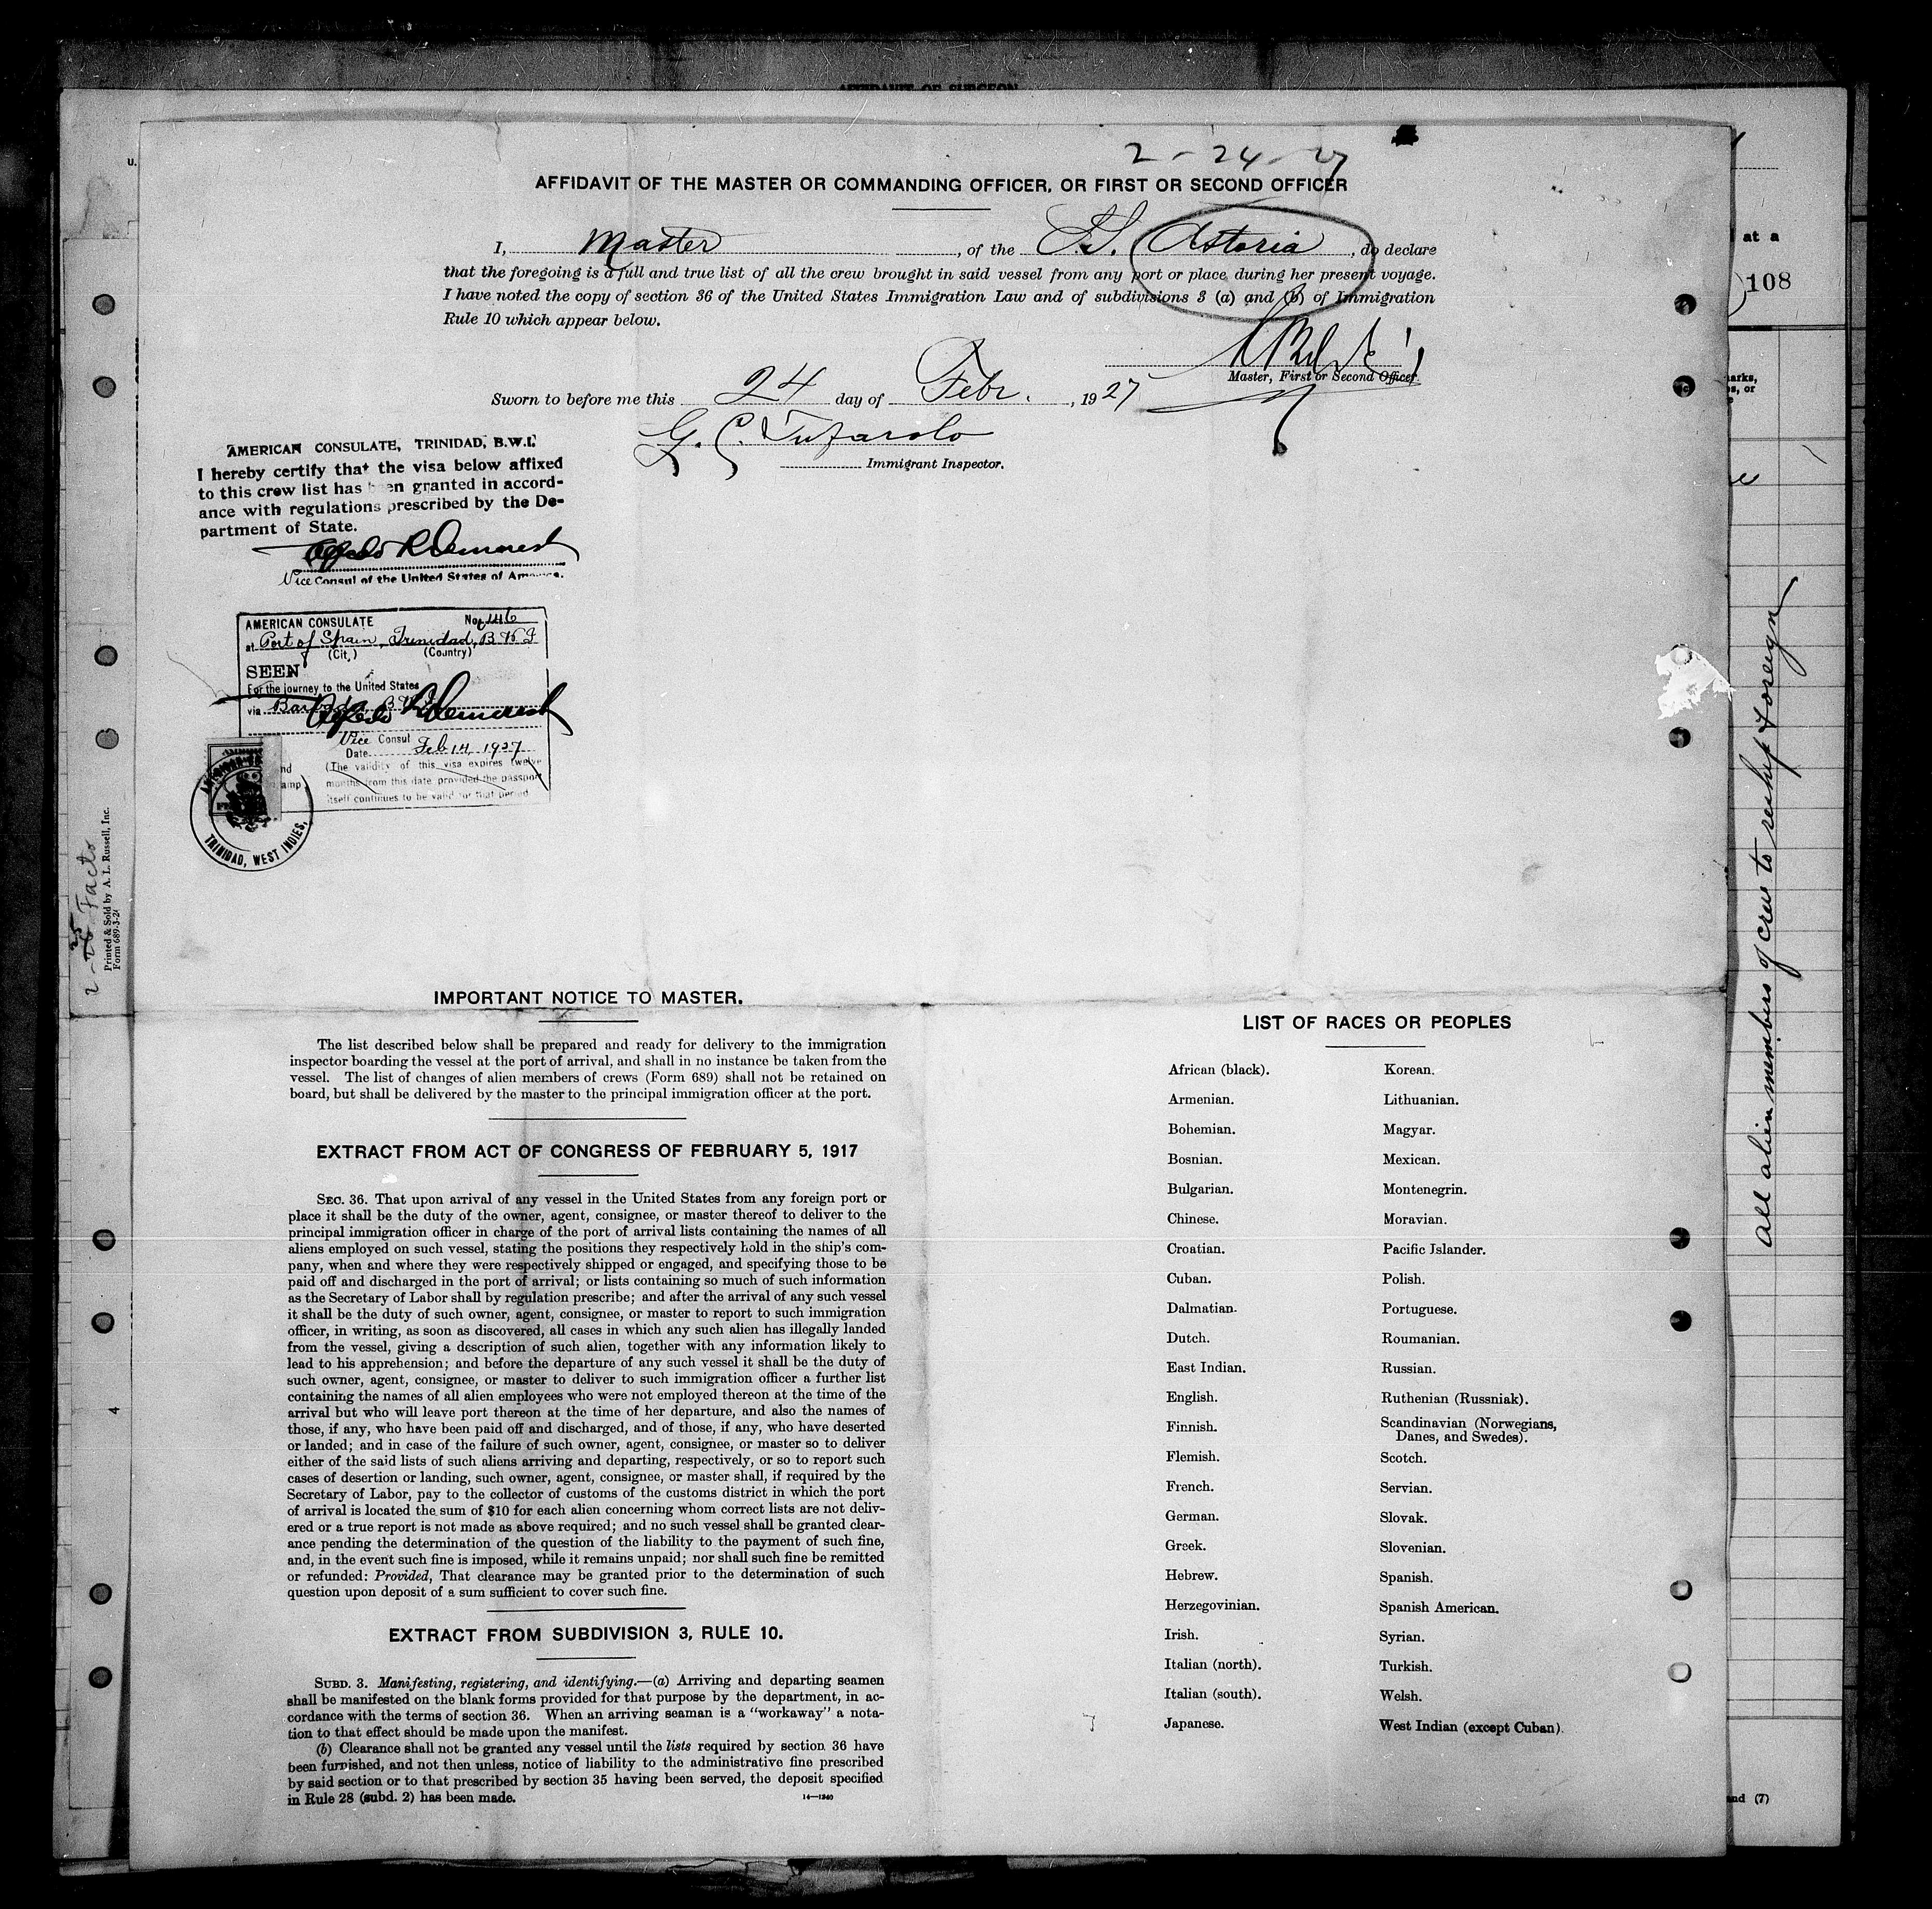 AFFIDAVIT OF SURGEON
2-24-27
AFFIDAVIT OF THE MASTER OR COMMANDING OFFICER, OR FIRST OR SECOND OFFICER
I, Master, of the S.S. Astoria, do declare
that the foregoing is a full and true list of all the crew brought in said vessel from any port or place during her present voyage.
I have noted the copy of section 36 of the United States Immigration Law and of subdivisions 3 (a) and (b) of Immigration
Rule 10 which appear below.
Master, First or Second Officer.
Sworn to before me this 24 day of Febr., 1927
G. C. Tufarolo
Immigrant Inspector.
AMERICAN CONSULATE, TRINIDAD, B.W.I.
I hereby certify that the visa below affixed
to this crew list has been granted in accord-
ance with regulations prescribed by the De-
partment of State.
Alfredo R Demorest
Vice Consul of the United States of America.
AMERICAN CONSULATE No.
at Port of Spain, Trinidad, B W I
(City) (Country)
SEEN
For the journey to the United States
via Barbados, B W I
Alfredo R Demorest
Vice Consul
Date Feb 14, 1927
(The validity of this visa expires twelve
months from this date provided the passport
itself continues to be valid for that period
TRINIDAD, WEST INDIES,
IMPORTANT NOTICE TO MASTER.
The list described below shall be prepared and ready for delivery to the immigration
inspector boarding the vessel at the port of arrival, and shall in no instance be taken from the
vessel. The list of changes of alien members of crews (Form 689) shall not be retained on
board, but shall be delivered by the master to the principal immigration officer at the port.
EXTRACT FROM ACT OF CONGRESS OF FEBRUARY 5, 1917
SEC. 36. That upon arrival of any vessel in the United States from any foreign port or
place it shall be the duty of the owner, agent, consignee, or master thereof to deliver to the
principal immigration officer in charge of the port of arrival lists containing the names of all
aliens employed on such vessel, stating the positions they respectively hold in the ship's com-
pany, when and where they were respectively shipped or engaged, and specifying those to be
paid off and discharged in the port of arrival; or lists containing so much of such information
as the Secretary of Labor shall by regulation prescribe; and after the arrival of any such vessel
it shall be the duty of such owner, agent, consignee, or master to report to such immigration
officer, in writing, as soon as discovered, all cases in which any such alien has illegally landed
from the vessel, giving a description of such alien, together with any information likely to
lead to his apprehension; and before the departure of any such vessel it shall be the duty of
such owner, agent, consignee, or master to deliver to such immigration officer a further list
containing the names of all alien employees who were not employed thereon at the time of the
arrival but who will leave port thereon at the time of her departure, and also the names of
those, if any, who have been paid off and discharged, and of those, if any, who have deserted
or landed; and in case of the failure of such owner, agent, consignee, or master so to deliver
either of the said lists of such aliens arriving and departing, respectively, or so to report such
cases of desertion or landing, such owner, agent, consignee, or master shall, if required by the
Secretary of Labor, pay to the collector of customs of the customs district in which the port
of arrival is located the sum of $10 for each alien concerning whom correct lists are not deliv-
ered or a true report is not made as above required; and no such vessel shall be granted clear-
ance pending the determination of the question of the liability to the payment of such fine,
and, in the event such fine is imposed, while it remains unpaid; nor shall such fine be remitted
or refunded: Provided, That clearance may be granted prior to the determination of such
question upon deposit of a sum sufficient to cover such fine.
EXTRACT FROM SUBDIVISION 3, RULE 10.
SUBD. 3. Manifesting, registering, and identifying.—(a) Arriving and departing seamen
shall be manifested on the blank forms provided for that purpose by the department, in ac-
cordance with the terms of section 36. When an arriving seaman is a "workaway" a nota-
tion to that effect should be made upon the manifest.
(b) Clearance shall not be granted any vessel until the lists required by section 36 have
been furnished, and not then unless, notice of liability to the administrative fine prescribed
by said section or to that prescribed by section 35 having been served, the deposit specified
in Rule 28 (subd. 2) has been made.
14—1240
LIST OF RACES OR PEOPLES
African (black).
Armenian.
Bohemian.
Bosnian.
Bulgarian.
Chinese.
Croatian.
Cuban.
Dalmatian.
Dutch.
East Indian.
English.
Finnish.
Flemish.
French.
German.
Greek.
Hebrew.
Herzegovinian.
Irish.
Italian (north).
Italian (south).
Japanese.
Korean.
Lithuanian.
Magyar.
Mexican.
Montenegrin.
Moravian.
Pacific Islander.
Polish.
Portuguese.
Roumanian.
Russian.
Ruthenian (Russniak).
Scandinavian (Norwegians,
Danes, and Swedes).
Scotch.
Servian.
Slovak.
Slovenian.
Spanish.
Spanish American.
Syrian.
Turkish.
Welsh.
West Indian (except Cuban).
Printed & Sold by A. L. Russell, Inc.
Form 689-3-24
4
at a
108
and (7)
all alien members of crew to reship foreign